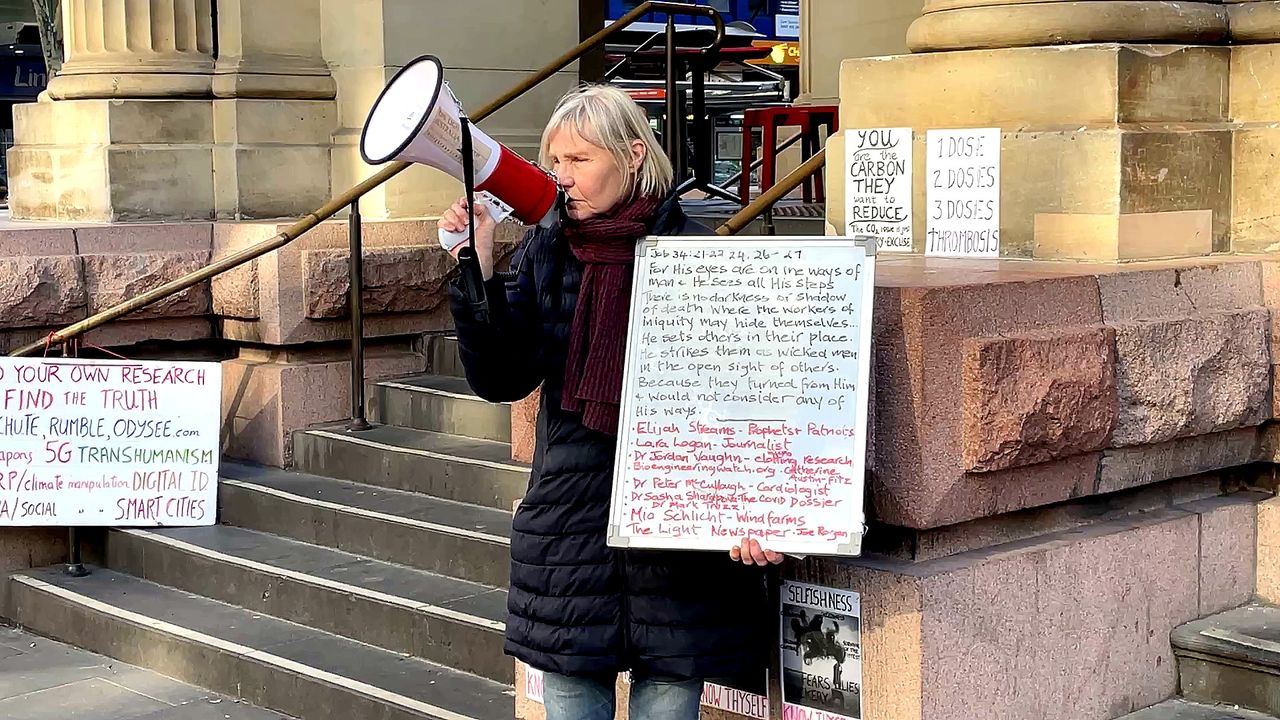 Lin
YOU
are the
CARBON
THEY
want to
REDUCE.
The CO2 issue is just
EXCUSE
1 DOSE
2 DOSES
3 DOSES
THROMBOSIS
Job 34:21-22 24. 26-27
For His eyes are on the ways of
man & He sees all His steps
There is no darkness or shadow
of death where the workers of
iniquity may hide themselves...
He sets others in their place.
He strikes them as wicked men
in the open sight of others.
Because they turned from Him
& would not consider any of
His ways.
• Elijah Streams - Prophets & Patriots
• Lara Logan - Journalist
• Dr Jordan Vaughn - clotting research
Bioengineeringwatch.org. Catherine
Austin-Fitz
Dr Peter McCullough - Cardiologist
Dr Sasha The Covid Dossier
Dr Mark
Mio Schlicht - Windfarms
The Light Newspaper • Joe Rogan
YOUR OWN RESEARCH
FIND THE TRUTH
CHUTE, RUMBLE, ODYSEE.com
apons 5G TRANSHUMANISM
RP/climate manipulation DIGITAL ID
/SOCIAL " " SMART CITIES
SELFISHNESS
FEARS LIES
KNOW THYSELF
KNOW THYS